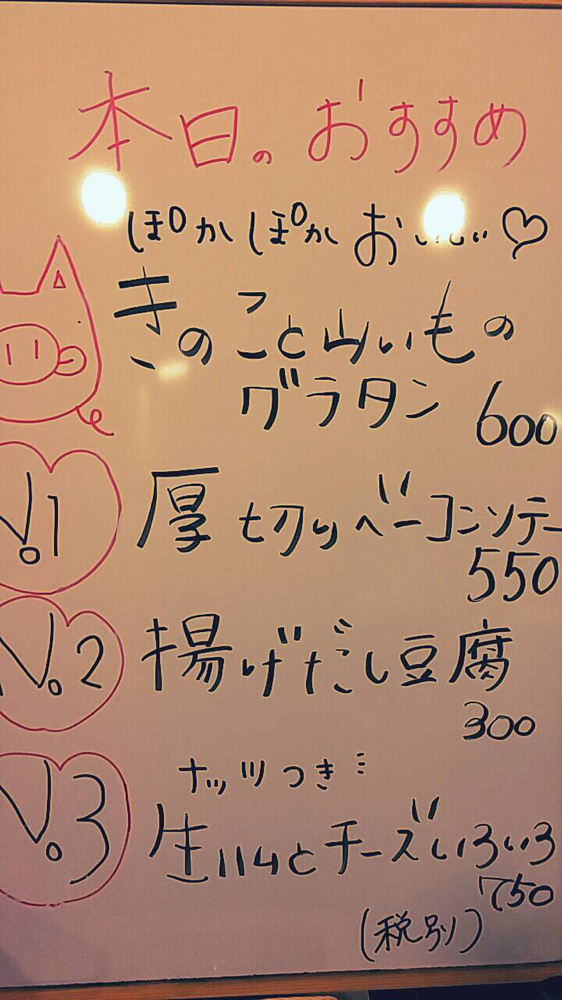 本日のおすすめ
ぽかぽかお
きのこと山いもの
グラタン 600
No.1 厚切りベーコンソテー
550
No.2 揚げだし豆腐
300
ナッツつき
生ハムとチーズいろいろ
No.3
750
(税別)